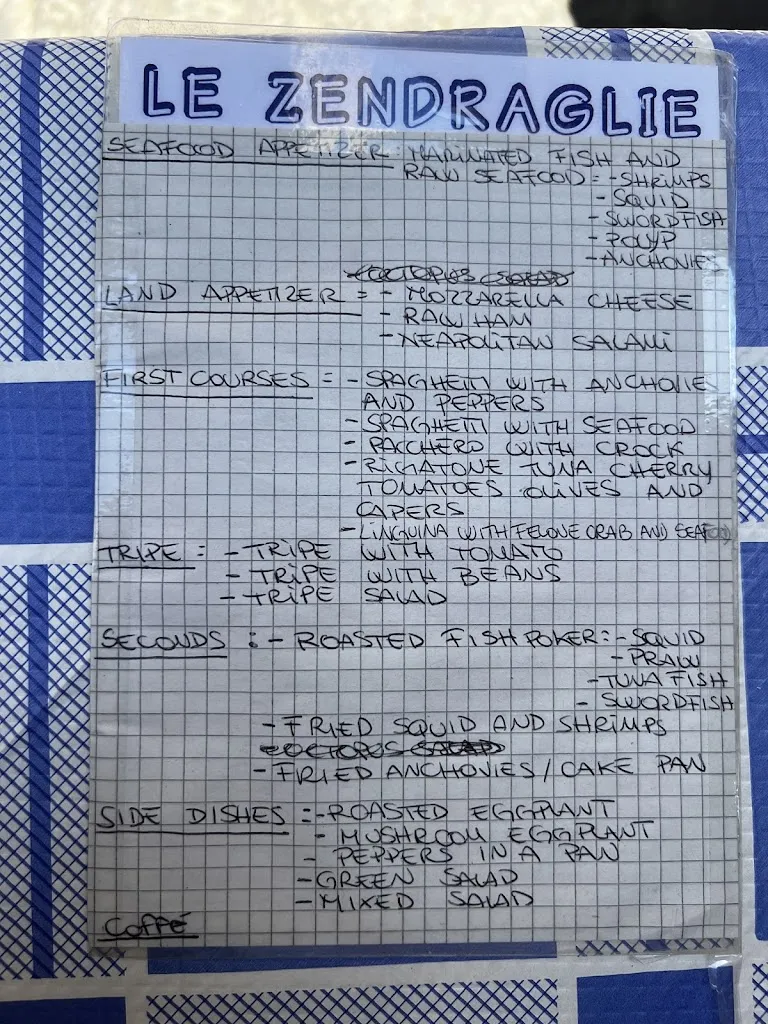 LE ZENDRAGLIE
SEAFOOD APPETIZER: MARINATED FISH AND
RAW SEAFOOD = - SHRIMPS
- SQUID
- SWORDFISH
- POLYP
- ANCHOVIES
LAND APPETIZER = - MOZZARELLA CHEESE
- RAW HAM
- NEAPOLITAN SALAMI
FIRST COURSES = - SPAGHETTI WITH ANCHOVIE
AND PEPPERS
- SPAGHETTI WITH SEAFOOD
- PACCHERO WITH CROCK
- RIGATONE TUNA CHERRY
TOMATOES OLIVES AND
CAPERS
- LINGUINA WITH FELOVE CRAB AND SEAFOOD
TRIPE : - TRIPE WITH TOMATO
- TRIPE WITH BEANS
- TRIPE SALAD
SECONDS : - ROASTED FISH POKER: - SQUID
- PRAW
- TUNA FISH
- SWORDFISH
- FRIED SQUID AND SHRIMPS
- FRIED ANCHOVIES / CAKE PAN
SIDE DISHES : - ROASTED EGGPLANT
- MUSHROOM EGGPLANT
- PEPPERS IN A PAN
- GREEN SALAD
- MIXED SALAD
COFFÉ